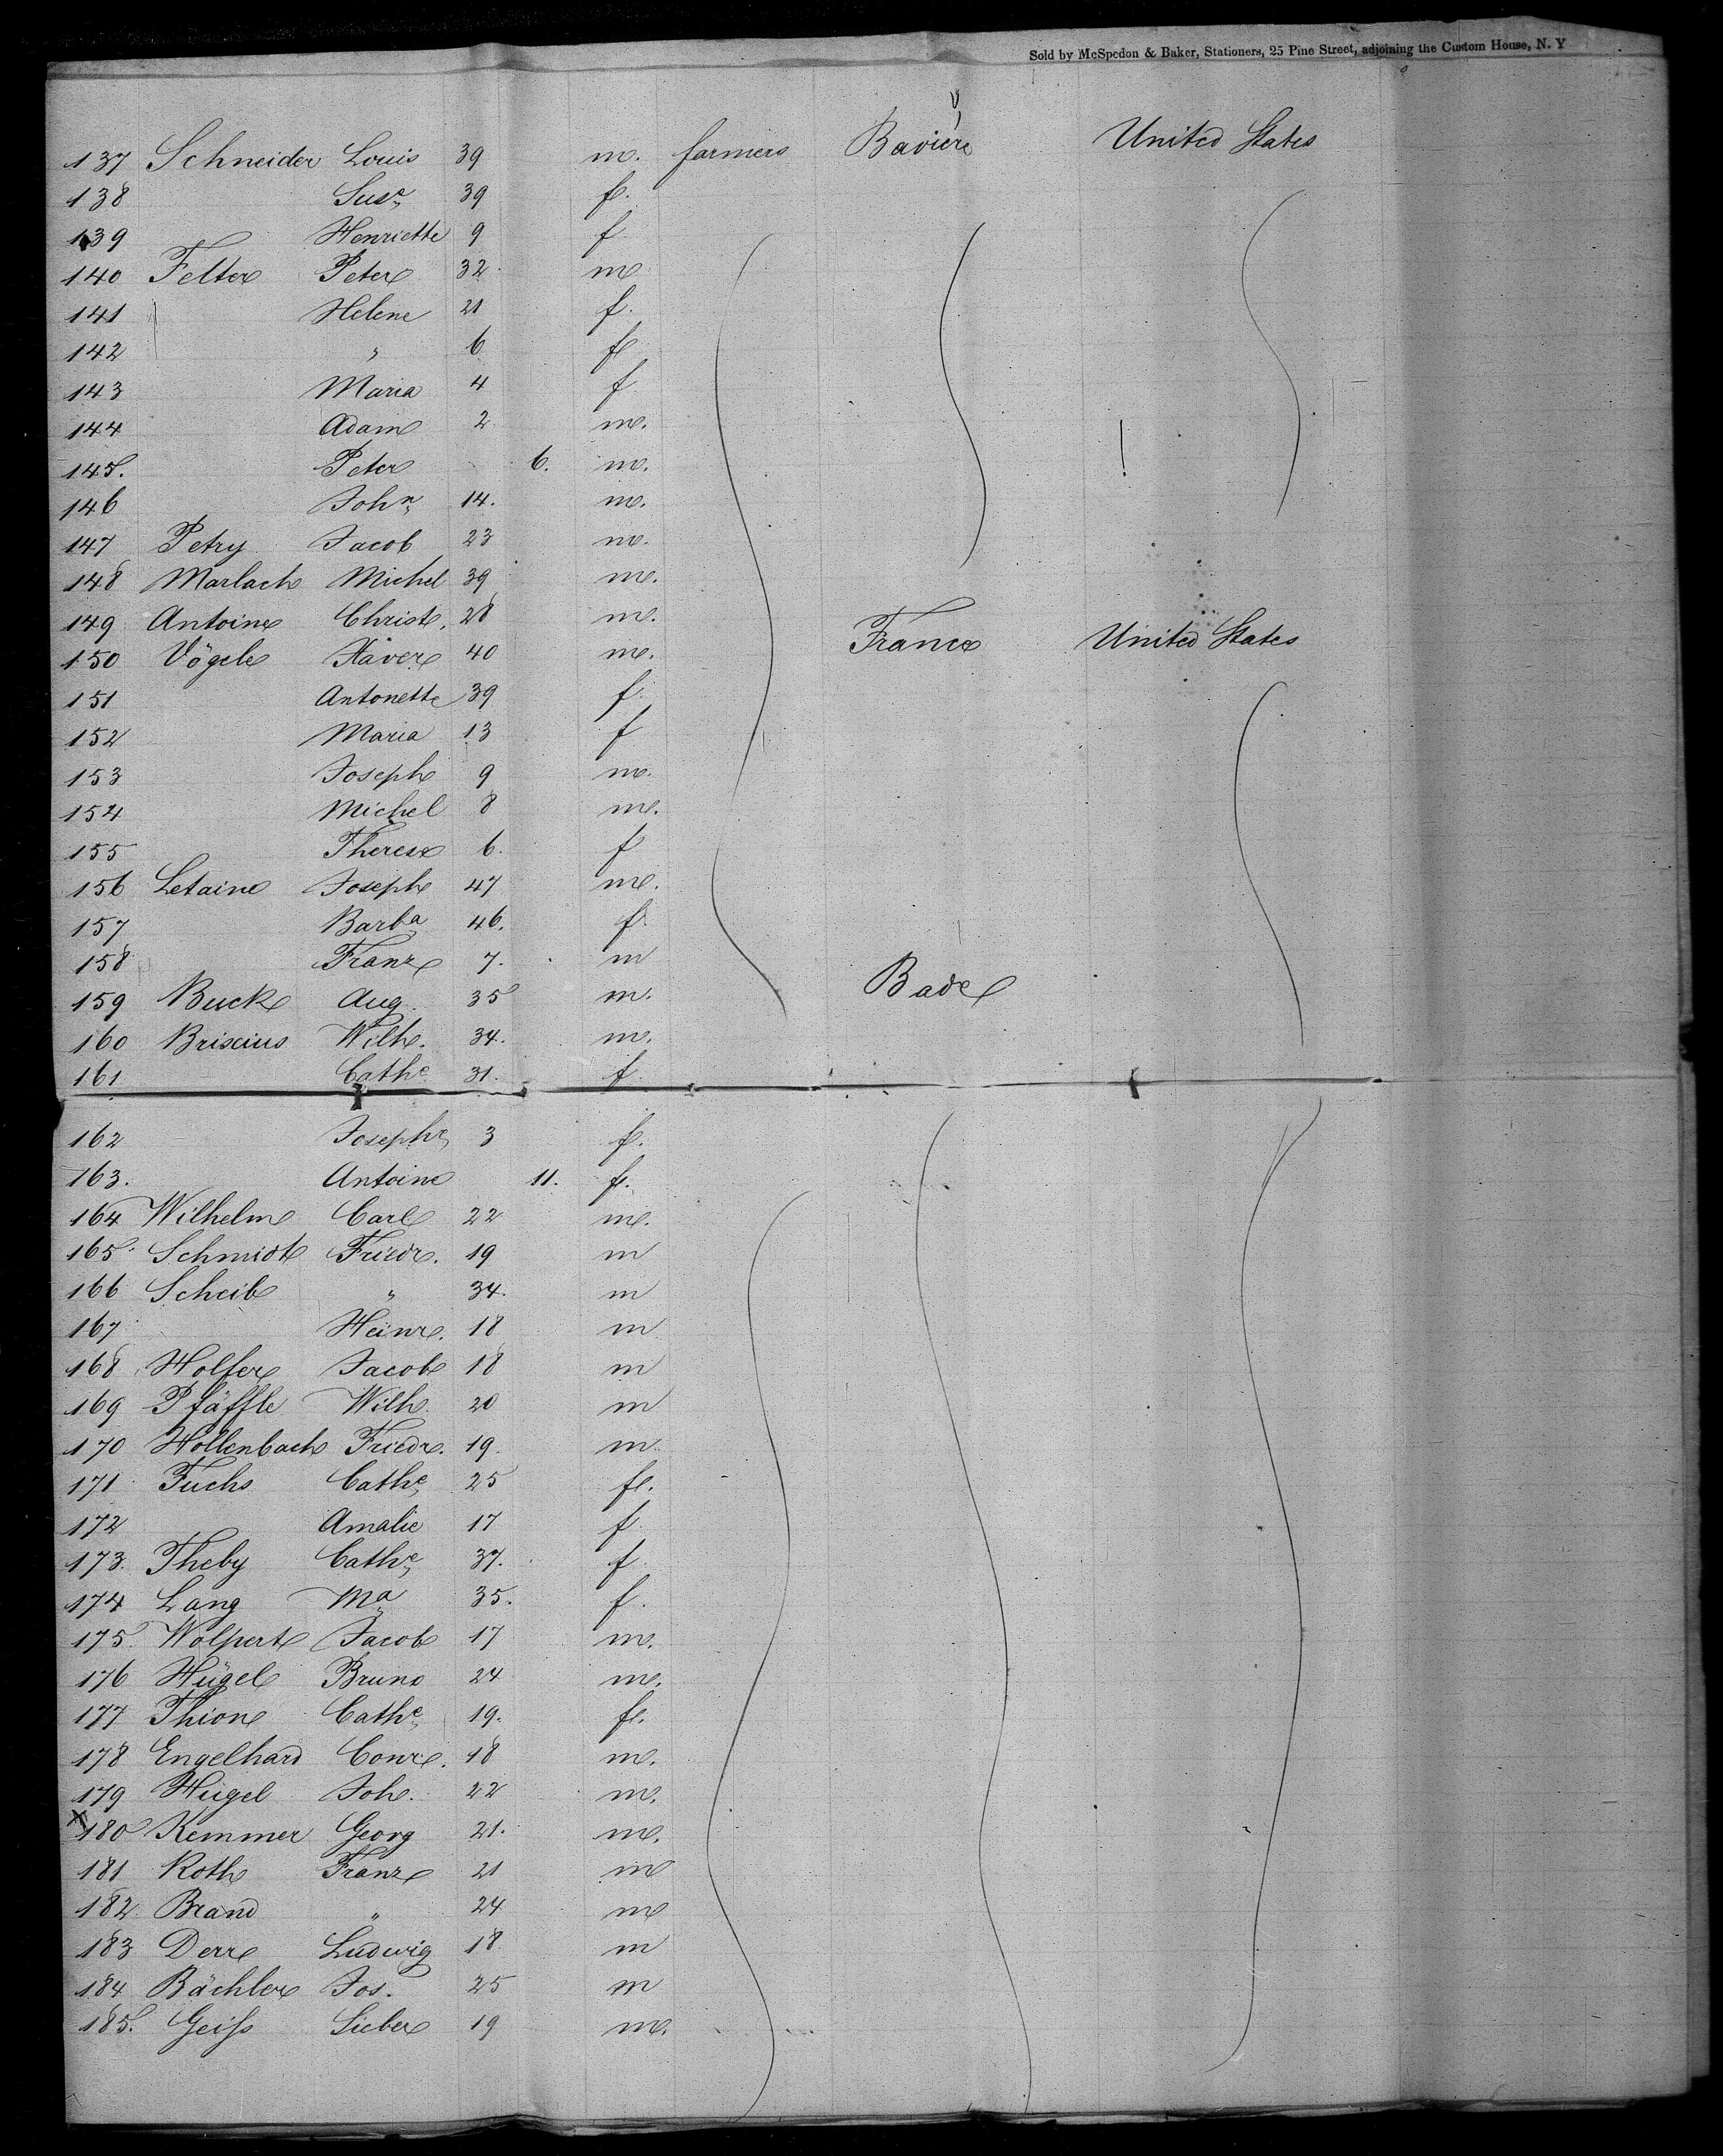 Sold by McSpedon & Baker, Stationers, 25 Pine Street, adjoining the Custom House, N. Y
137 Schneider Louis 39 m. farmers Baviere United States
138 Suse 39 f.
139 Henriette 9 f
140 Felter Peter 32 m
141 Helene 21 f.
142 " 6 f
143 Maria 4 f
144 Adam 2 m.
145. Peter 6. m.
146 John 14. m.
147 Petry Jacob 23 m.
148 Marlach Michel 39 m.
149 Antoine Christ. 28 m.
150 Vögele Xaver 40 m. France United States
151 Antonette 39 f
152 Maria 13 f
153 Joseph 9 m.
154 Michel 8 m.
155 Therese 6. f
156 Letaine Joseph 47 m.
157 Barba 46. f
158 Franz 7. m
159 Buck Aug. 35 m. Bade
160 Brixius Wilh. 34. m.
161 Cathe 31. f
162 Josephe 3 f.
163. Antoine 11. f.
164 Wilhelm Carl 22 m.
165. Schmidt Friedr. 19 m
166 Scheib " 34. m
167 Heinr. 18 m
168 Holfer Jacob 18 m
169 Pfäffle Wilh. 20 m
170 Hollenbach Friedr. 19. m
171 Fuchs Cathe 25 f.
172 Amalie 17 f
173. Theby Cathe 37. f
174 Lang Ma 35. f.
175. Wolpert Jacob 17 m.
176 Hügel Bruno 24 m.
177 Thion Cathe 19. f.
178 Engelhard Conr. 18 m.
179 Hugel Joh. 22 m.
x 180 Kemmer Georg 21. m.
181 Roth Franz 21 m
182. Brand " 24 m
183 Derr Ludwig 18 m
184 Bächler Jos. 25 m
185. Geiss Lieber 19 m.